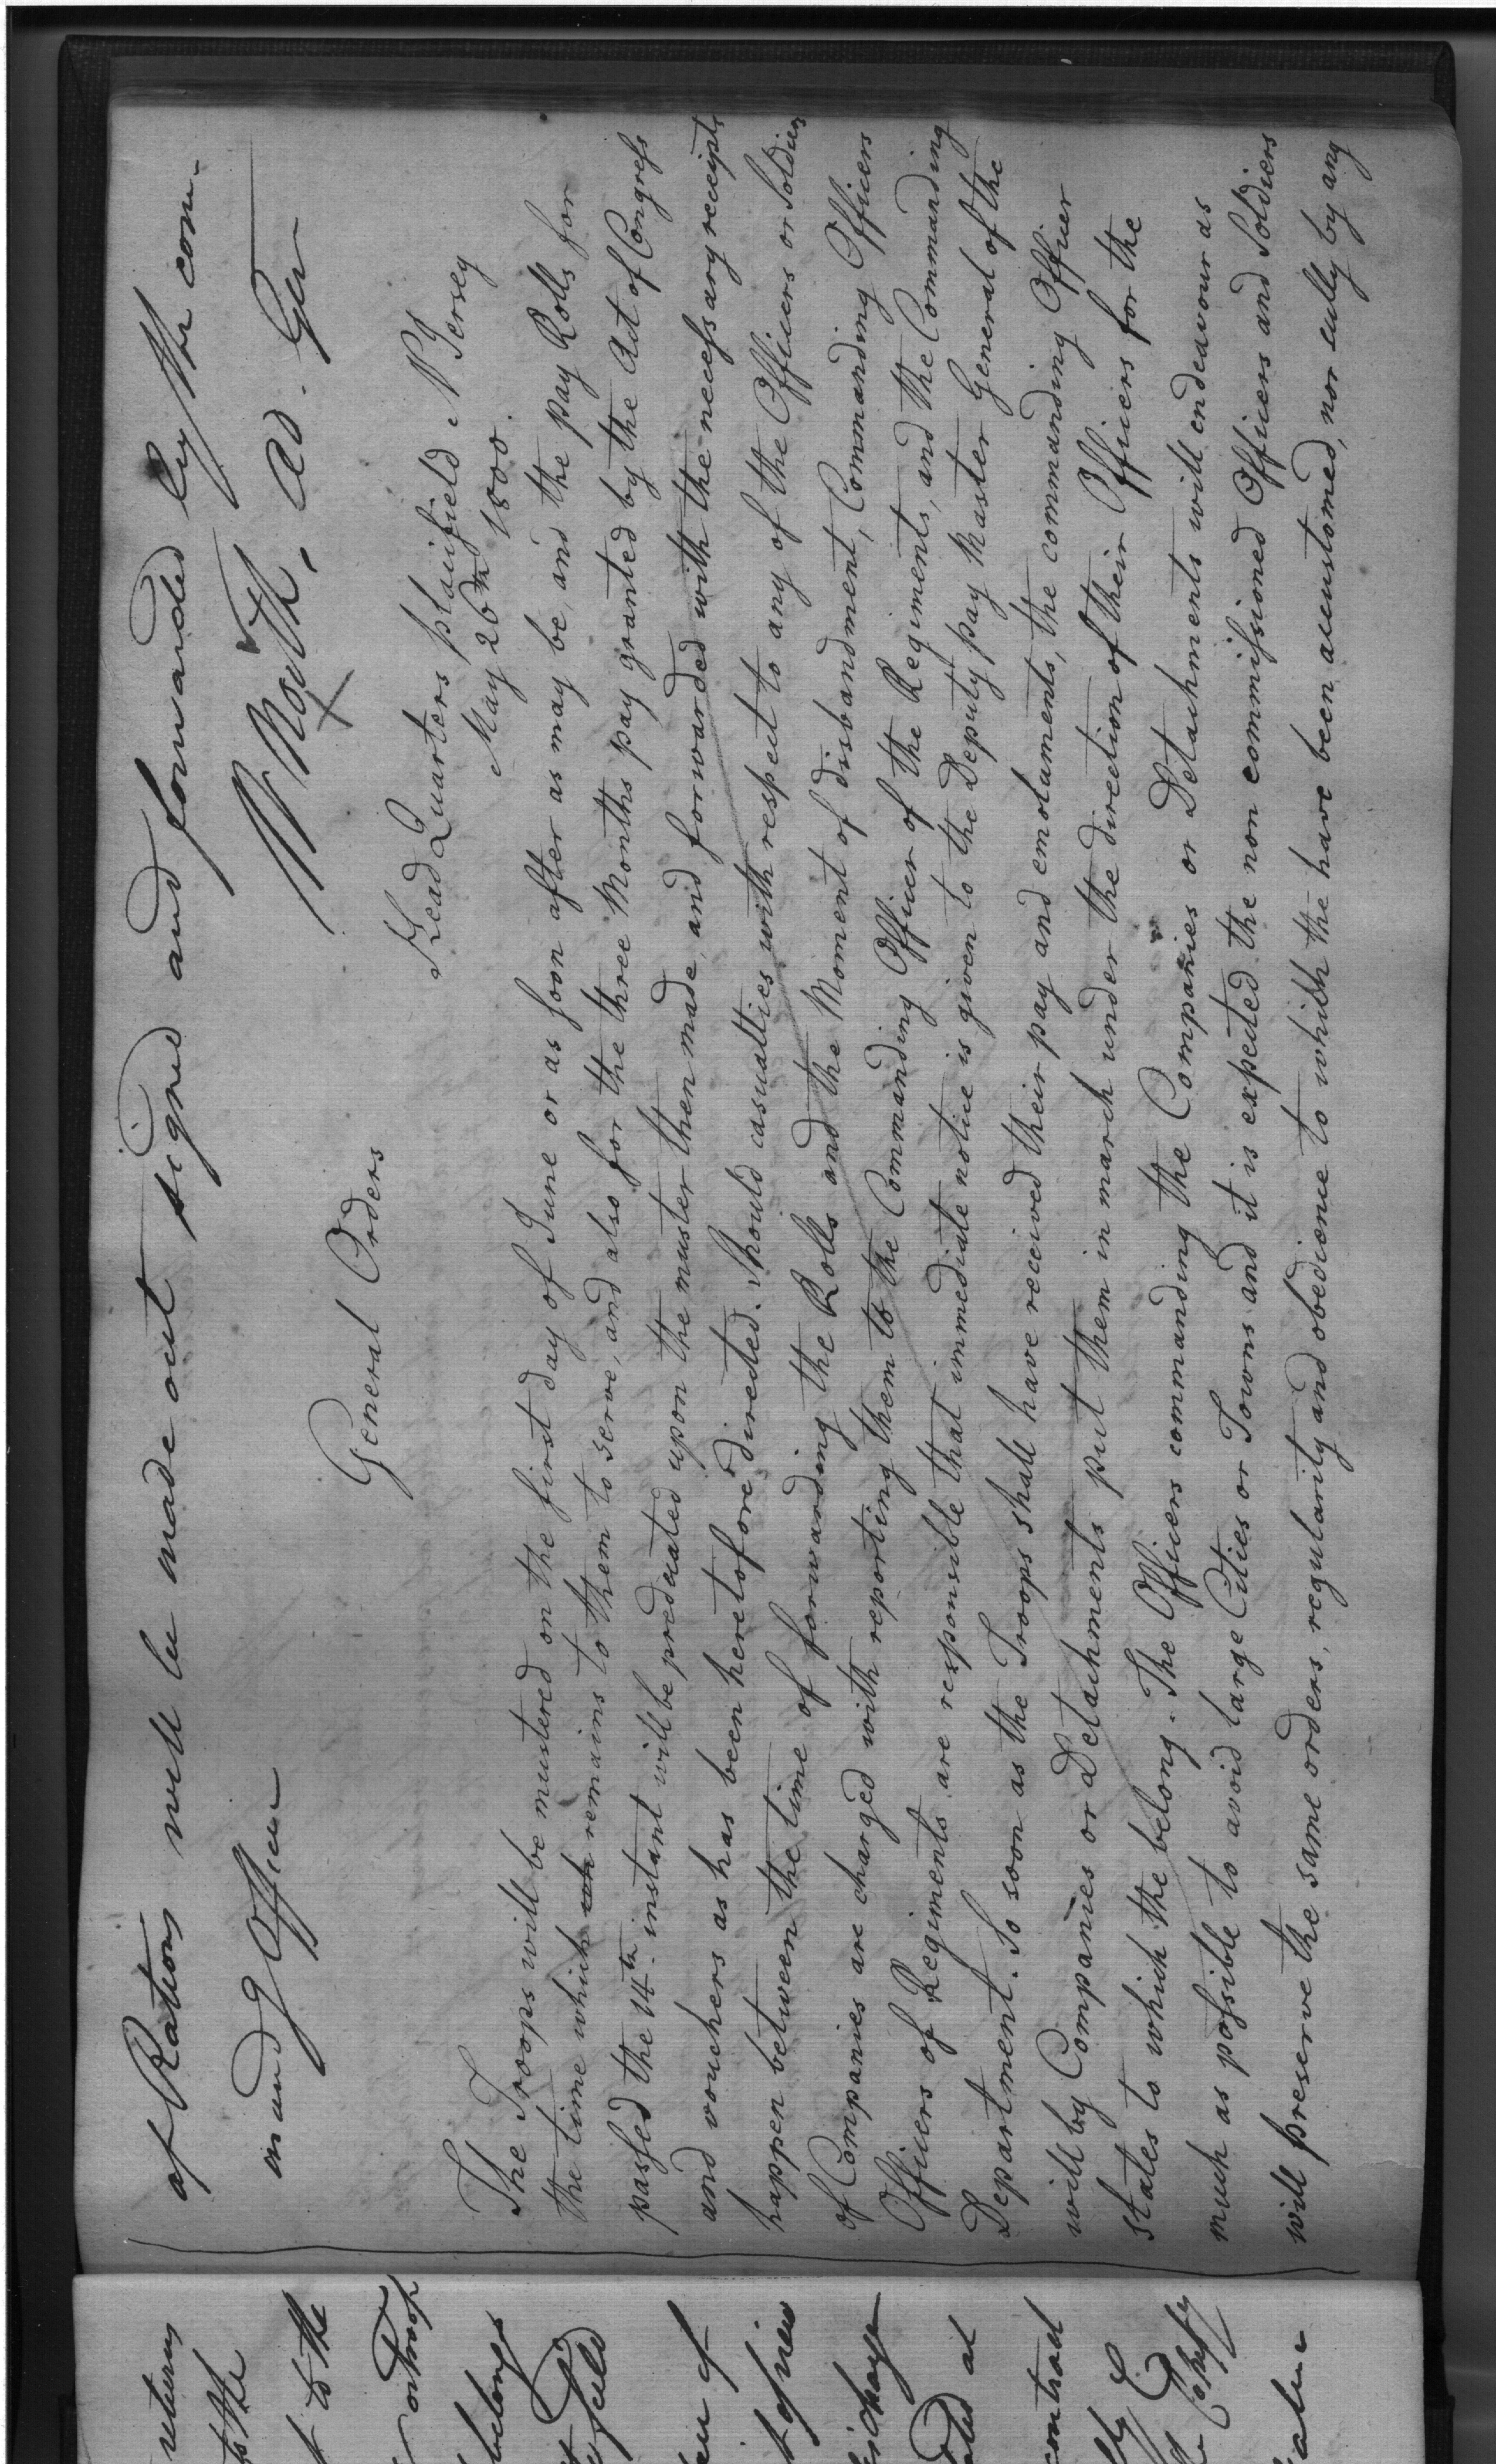 of Rations will be made out signed and forwarded by the com-
mand g Officer
W North. Ad. Gen
General Orders
Head Quarters plainfield N Jersey
May 26th 1800.
The Troops will be mustered on the first day of June or as soon after as may be, and the pay Rolls for
the time which remains to them to serve, and also for the three Months pay granted by the Act of Congress
passed the 14th instant will be predicated upon the muster then made, and forwarded with the necessary receipts
and vouchers as has been heretofore directed. Should casualties with respect to any of the Officers or Soldiers
happen between the time of forwarding the Rolls and the Moment of disbandment, Commanding Officers
of Companies are charged with reporting them to the Commanding Officer of the Regiments, and the Commanding
Officers of Regiments are responsible that immediate notice is given to the Deputy pay Master General of the
Department. So soon as the Troops shall have received their pay and emolaments, the commanding Officer
will by Companies or Detachments put them in march under the direction of their Officers for the
states to which the belong. The Officers commanding the Companies or Detachments will endeavour as
much as possible to avoid large Cities or Towns and it is expected the non commissioned Officers and Soldiers
will preserve the same orders, regularity and obedience to which the have been accustomed, nor sully by any
returns
to the
to the
or troop
belongs
field
of
of view
discharge
at
contract